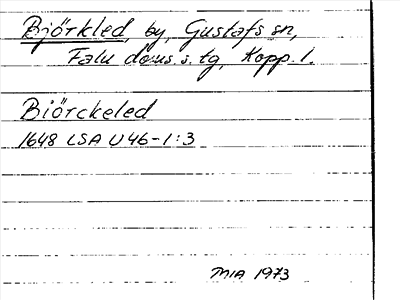 Björkled, by, Gustafs sn,
Falu doms. s. tg, Kopp. l.
Biörckeled
1648 LSA U46-1:3
MIA 1973